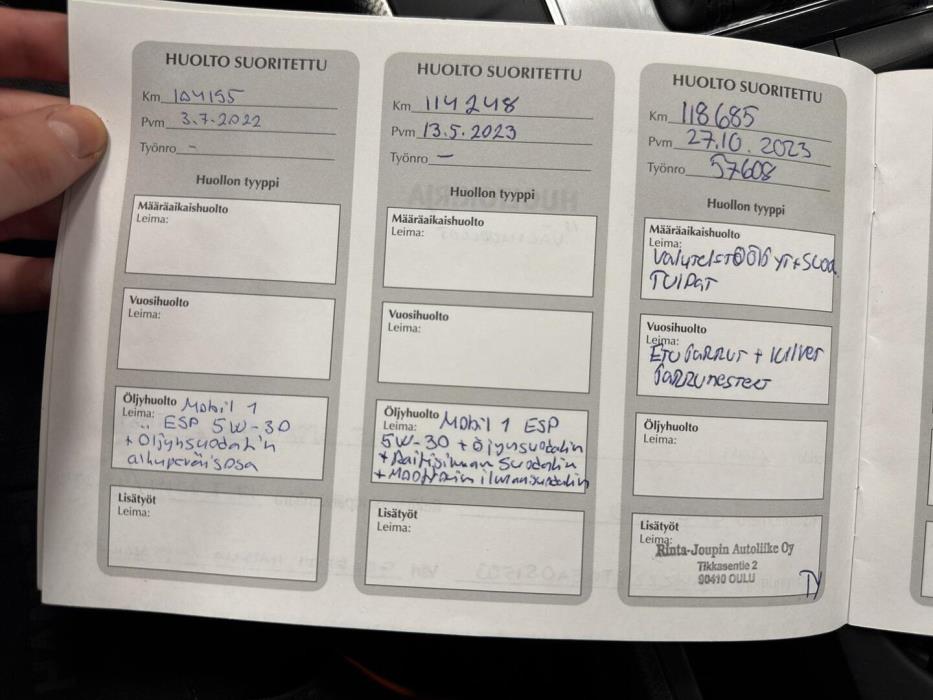 HUOLTO SUORITETTU
Km 104195
Pvm 3.7.2022
Työnro -
Huollon tyyppi
Määräaikaishuolto
Leima:
Vuosihuolto
Leima:
Öljyhuolto Mobil 1
Leima: " ESP 5W-30
+ Öljynsuodatin
alkuperäisosa
Lisätyöt
Leima:
HUOLTO SUORITETTU
Km 114248
Pvm 13.5.2023
Työnro -
Huollon tyyppi
Määräaikaishuolto
Leima:
Vuosihuolto
Leima:
Öljyhuolto Mobil 1 ESP
Leima:
5W-30 + Öljynsuodatin
+ Raitisilman Suodatin
+ Moottorin ilmansuodatin
Lisätyöt
Leima:
HUOLTO SUORITETTU
Km 118685
Pvm 27.10.2023
Työnro 57608
Huollon tyyppi
Määräaikaishuolto
Leima:
TULPAT
Vuosihuolto
Leima:
ETUJARRUT +
JARRUNESTEET
Öljyhuolto
Leima:
Lisätyöt
Leima:
Rinta-Joupin Autoliike Oy
Tikkasentie 2
90410 OULU